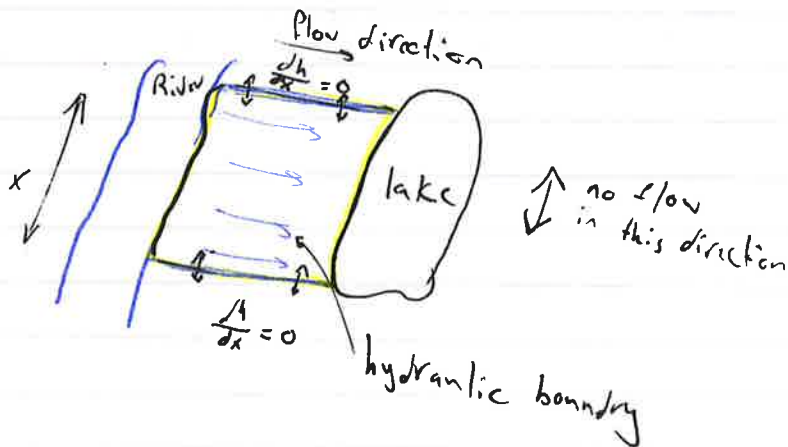 flow direction
River
dh/dx = 0
x
lake
no flow
in this direction
dh/dx = 0
hydraulic boundry